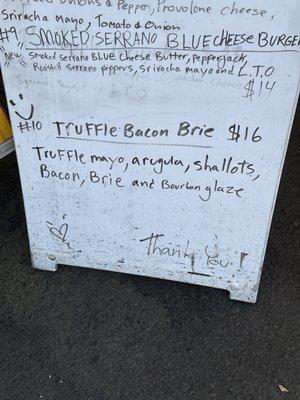 Onions and Peppers, Provolone cheese,
Sriracha Mayo, Tomato & Onion
#9 SMOKED SERRANO BLUE CHEESE BURGER
New Smoked Serrano BLUE Cheese Butter, Pepperjack,
Roasted Serrano peppers, sriracha mayo and L.T.O
$14
#10 Truffle Bacon Brie $16
Truffle mayo, arugula, shallots,
Bacon, Brie and Bourbon glaze
Thank You!